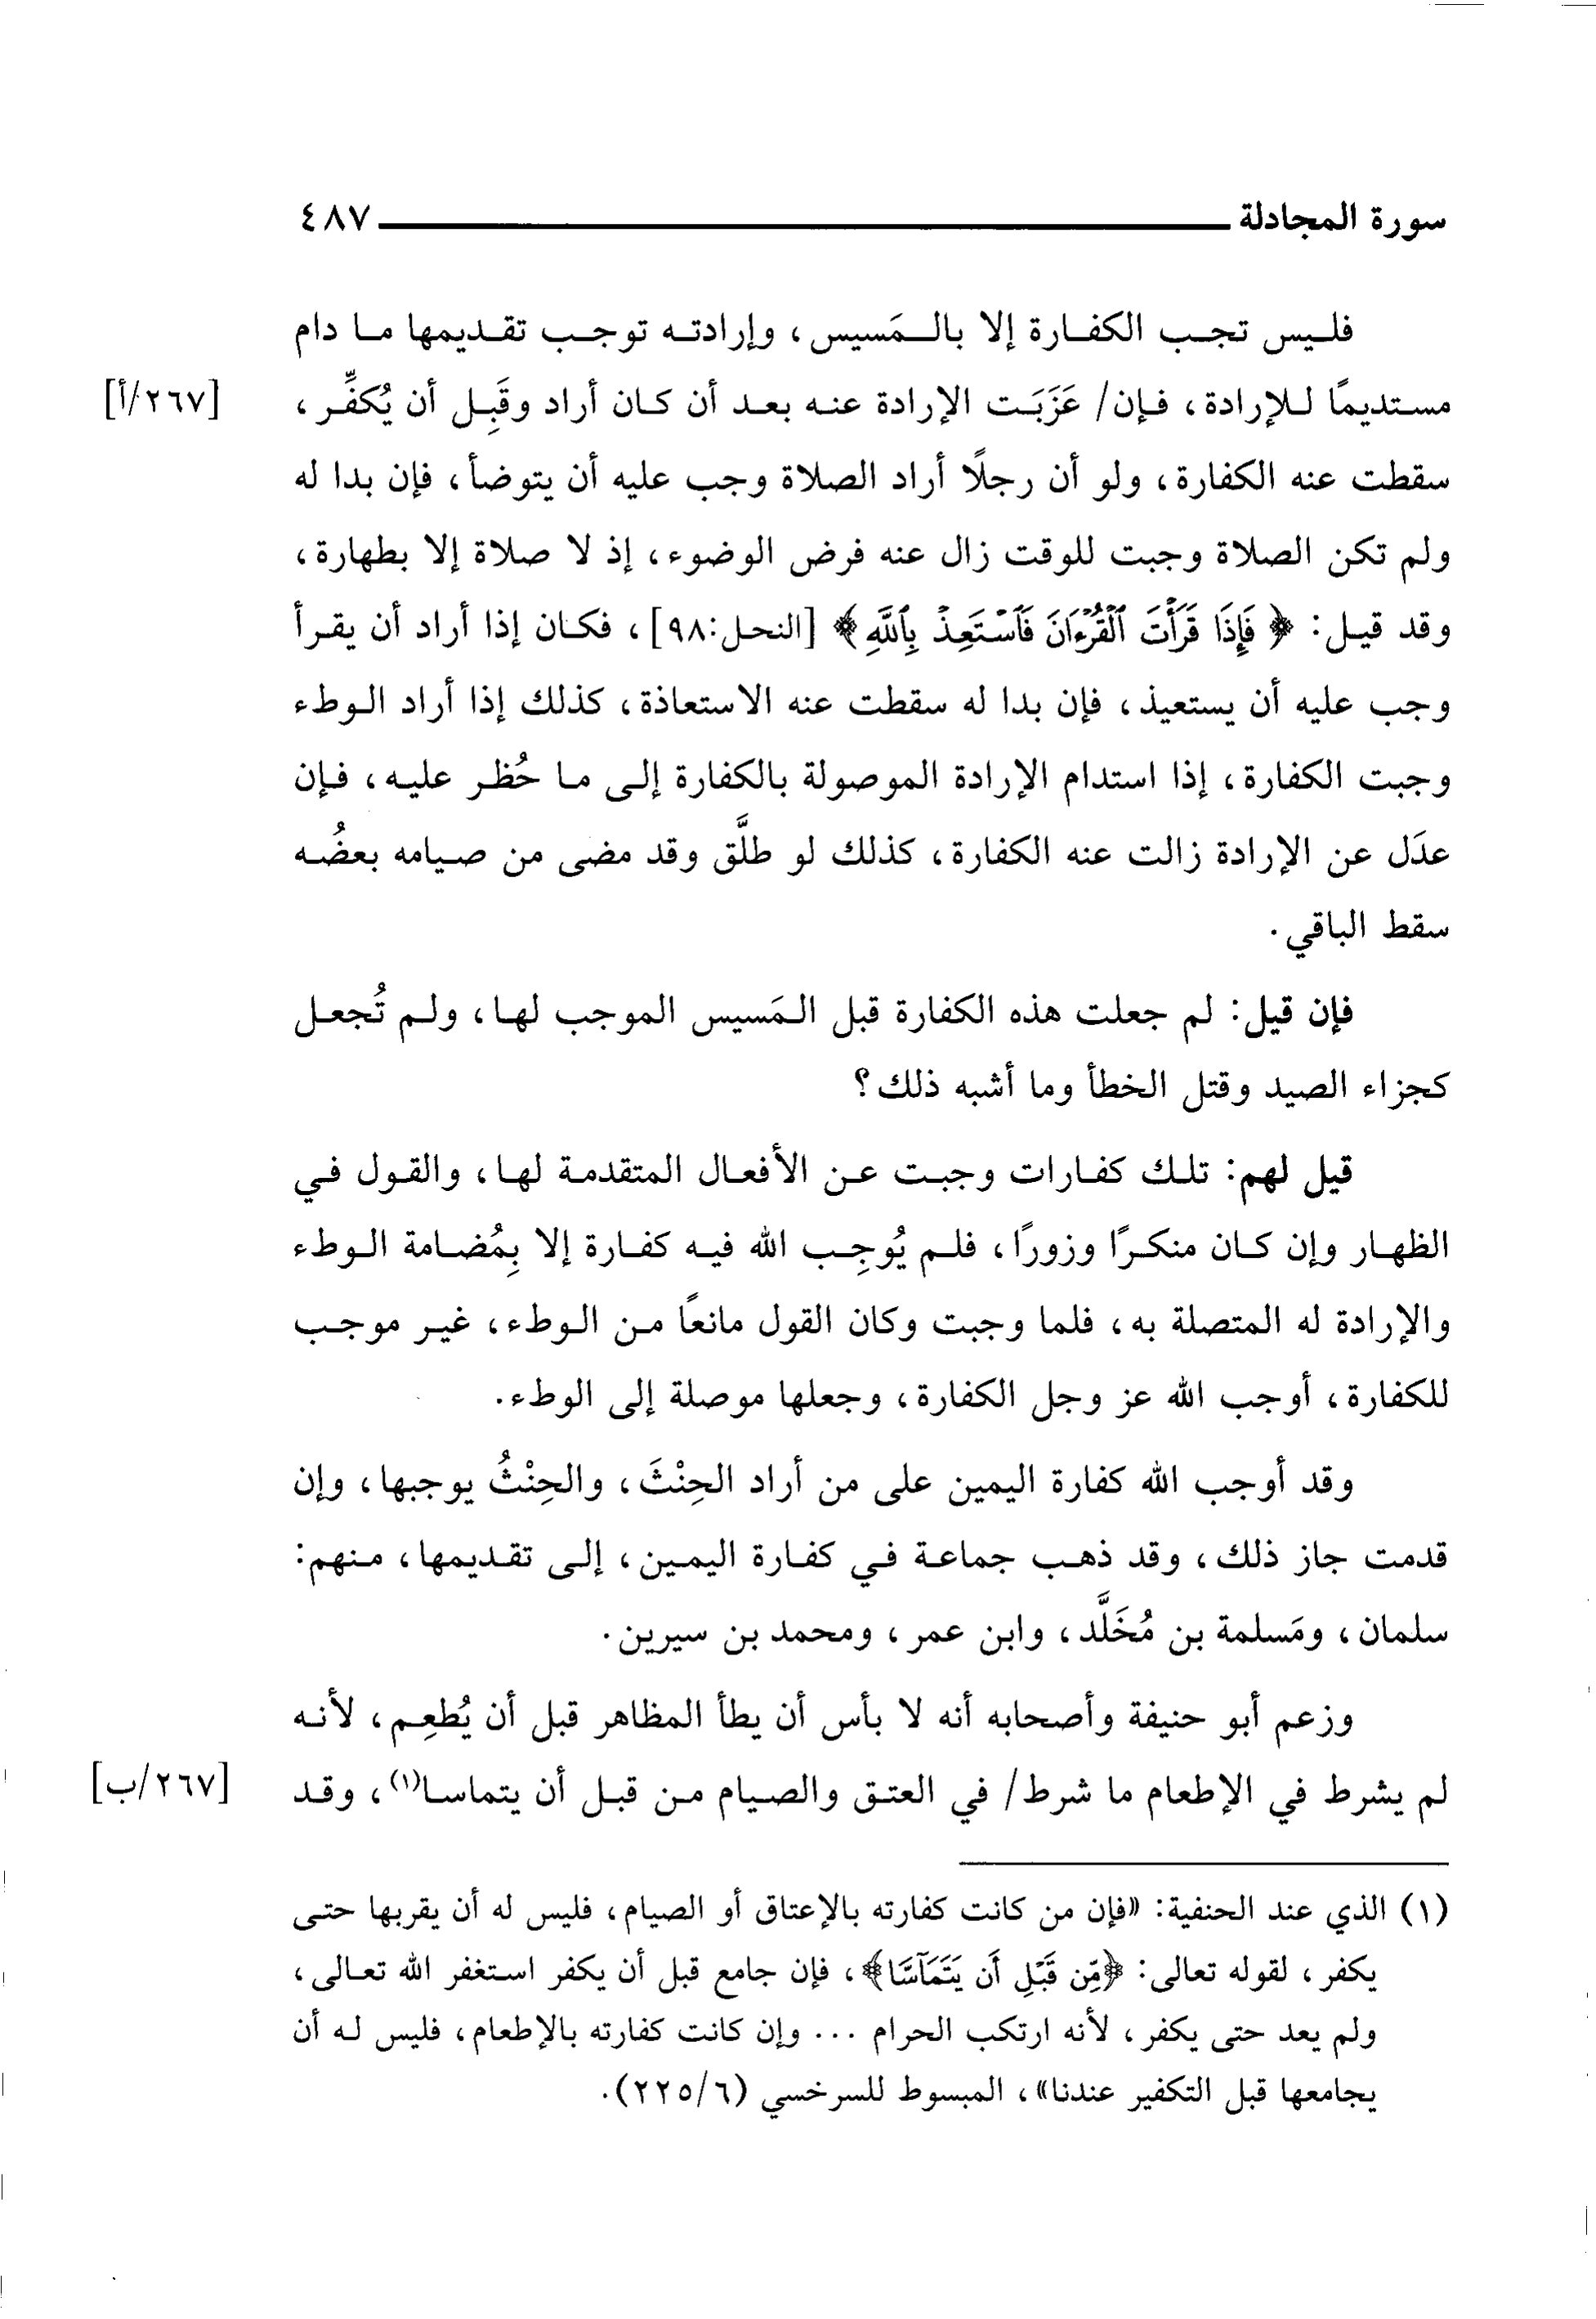 سورة المجادلة ٤٨٧
فليس تجب الكفارة إلا بالمَسيس، وإرادته توجب تقديمها ما دام
مستديمًا للإرادة، فإن/ عَزَبَت الإرادة عنه بعد أن كان أراد وقَبِل أن يُكفِّر، [٢٦٧/أ]
سقطت عنه الكفارة، ولو أن رجلًا أراد الصلاة وجب عليه أن يتوضأ، فإن بدا له
ولم تكن الصلاة وجبت للوقت زال عنه فرض الوضوء، إذ لا صلاة إلا بطهارة،
وقد قيل: ﴿ فَإِذَا قَرَأْتَ ٱلْقُرْءَانَ فَٱسْتَعِذْ بِٱللَّهِ ﴾ [النحل:٩٨]، فكان إذا أراد أن يقرأ
وجب عليه أن يستعيذ، فإن بدا له سقطت عنه الاستعاذة، كذلك إذا أراد الوطء
وجبت الكفارة، إذا استدام الإرادة الموصولة بالكفارة إلى ما حُظر عليه، فإن
عدَل عن الإرادة زالت عنه الكفارة، كذلك لو طلَّق وقد مضى من صيامه بعضُه
سقط الباقي.
فإن قيل: لم جعلت هذه الكفارة قبل المَسيس الموجب لها، ولم تُجعل
كجزاء الصيد وقتل الخطأ وما أشبه ذلك؟
قيل لهم: تلك كفارات وجبت عن الأفعال المتقدمة لها، والقول في
الظهار وإن كان منكرًا وزورًا، فلم يُوجِب الله فيه كفارة إلا بِمُضامة الوطء
والإرادة له المتصلة به، فلما وجبت وكان القول مانعًا من الوطء، غير موجب
للكفارة، أوجب الله عز وجل الكفارة، وجعلها موصلة إلى الوطء.
وقد أوجب الله كفارة اليمين على من أراد الحِنْثَ، والحِنْثُ يوجبها، وإن
قدمت جاز ذلك، وقد ذهب جماعة في كفارة اليمين، إلى تقديمها، منهم:
سلمان، ومَسلمة بن مُخَلَّد، وابن عمر، ومحمد بن سيرين.
وزعم أبو حنيفة وأصحابه أنه لا بأس أن يطأ المظاهر قبل أن يُطعِم، لأنه
لم يشرط في الإطعام ما شرط/ في العتق والصيام من قبل أن يتماسا(١)، وقد [٢٦٧/ب]
(١) الذي عند الحنفية: «فإن من كانت كفارته بالإعتاق أو الصيام، فليس له أن يقربها حتى
يكفر، لقوله تعالى: ﴿مِّن قَبْلِ أَن يَتَمَآسَّا﴾، فإن جامع قبل أن يكفر استغفر الله تعالى،
ولم يعد حتى يكفر، لأنه ارتكب الحرام ... وإن كانت كفارته بالإطعام، فليس له أن
يجامعها قبل التكفير عندنا»، المبسوط للسرخسي (٢٢٥/٦).